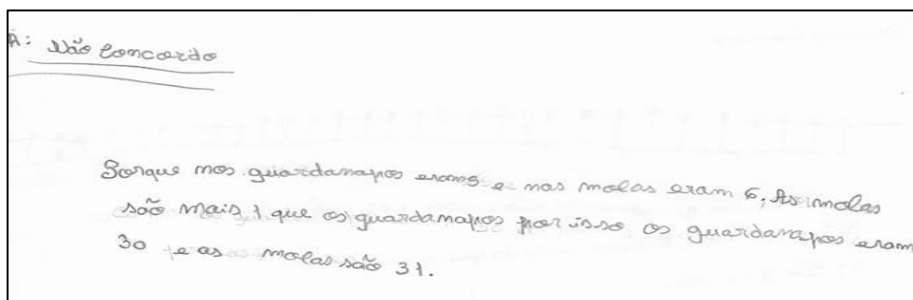 R: Não Concordo
Porque nos guardanapos eram 5 e nas molas eram 6. As molas
são mais 1 que os guardanapos por isso os guardanapos eram
30 e as molas são 31.